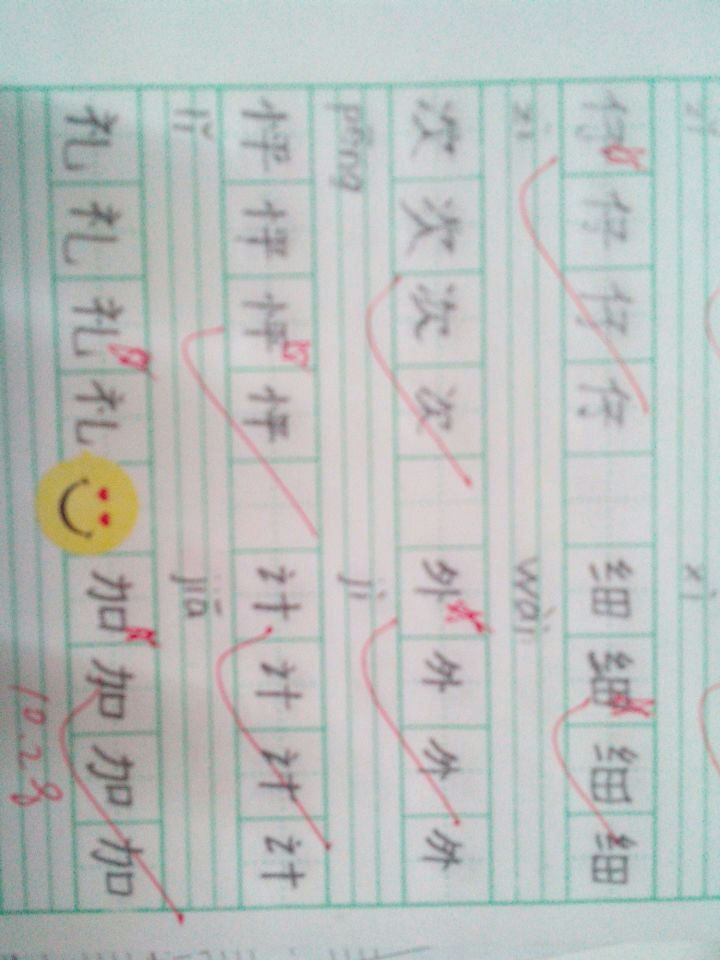 zǐ xì
仔 仔 仔 仔 细 细 细 细
wài
次 次 次 次 外 外 外 外
pēng jì
怦 怦 怦 怦 计 计 计 计
lǐ jiā
礼 礼 礼 礼 加 加 加 加
10.28